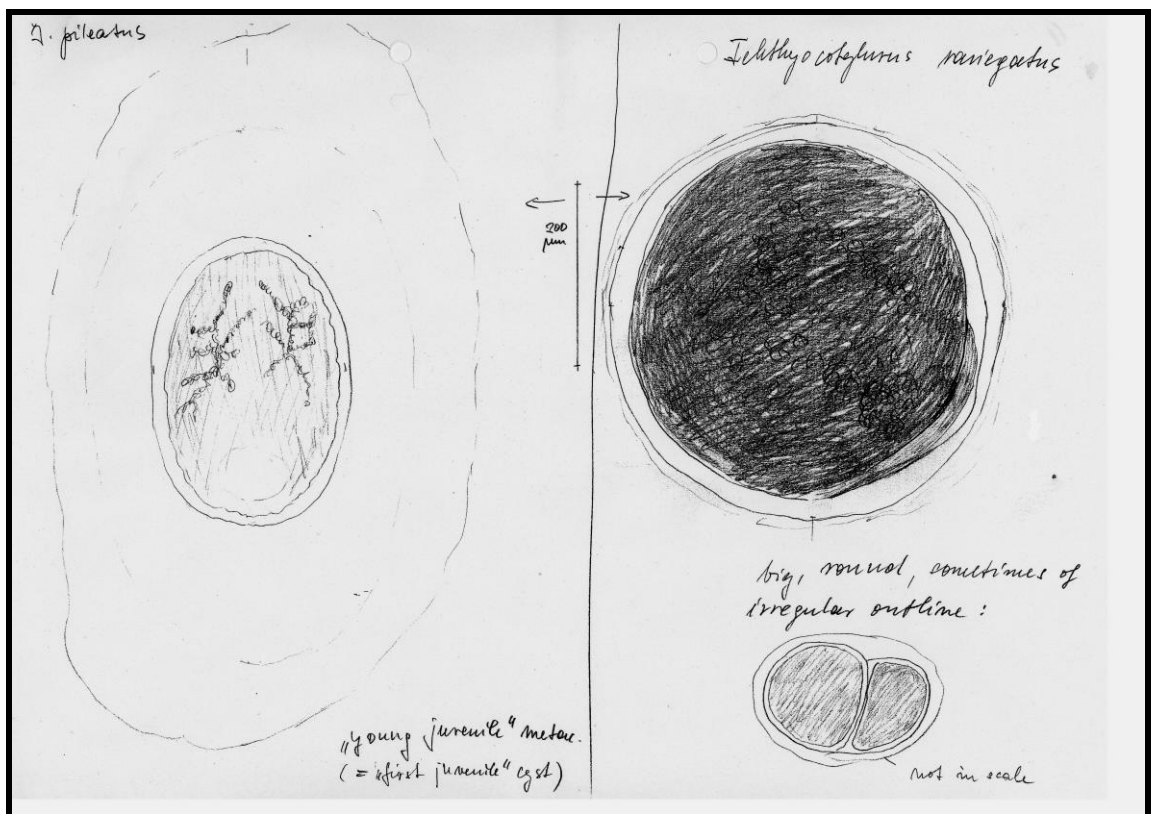 I. pileatus
Ichthyocotylurus variegatus
200
µm
big, round, sometimes of
irregular outline :
„young juvenile“ metac.
(= „first juvenile“ cyst)
not in scale